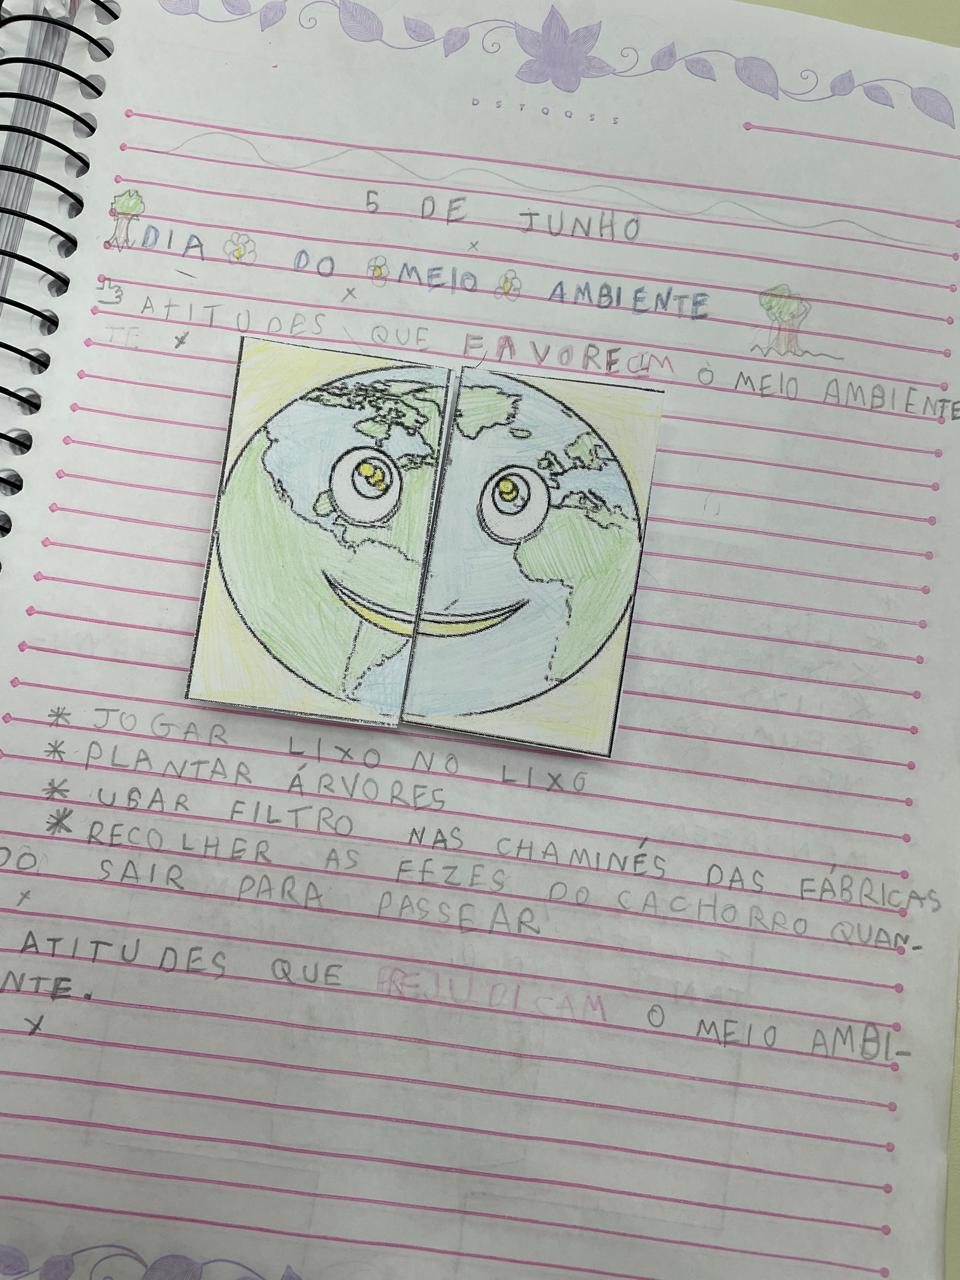 D S T Q Q S S
5 DE JUNHO
DIA DO MEIO AMBIENTE
ATITUDES QUE FAVORECEM O MEIO AMBIENTE
TE
* JOGAR LIXO NO LIXO
* PLANTAR ÁRVORES
* USAR FILTRO NAS CHAMINÉS DAS FÁBRICAS
* RECOLHER AS FÉZES DO CACHORRO QUAN-
DO SAIR PARA PASSEAR
ATITUDES QUE PREJUDICAM O MEIO AMBI-
NTE.